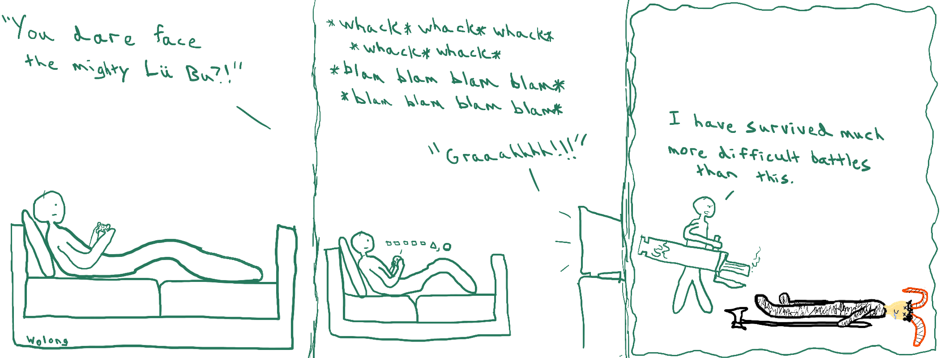 "You dare face
the mighty Lü Bu?!"
Wolong
*whack* whack* whack*
*whack* whack*
*blam blam blam blam*
*blam blam blam blam*
"Graaahhhh!!!"
I have survived much
more difficult battles
than this.